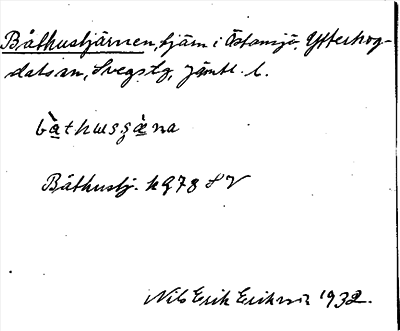 Båthustjärnen, tjärn i Östansjö, Ytterhog-
dals sn, Svegs tg, Jämtl. l.
båthusȿæ̀na
Båthustj. k 978 SV
Nils Erik Eriksson 1932.